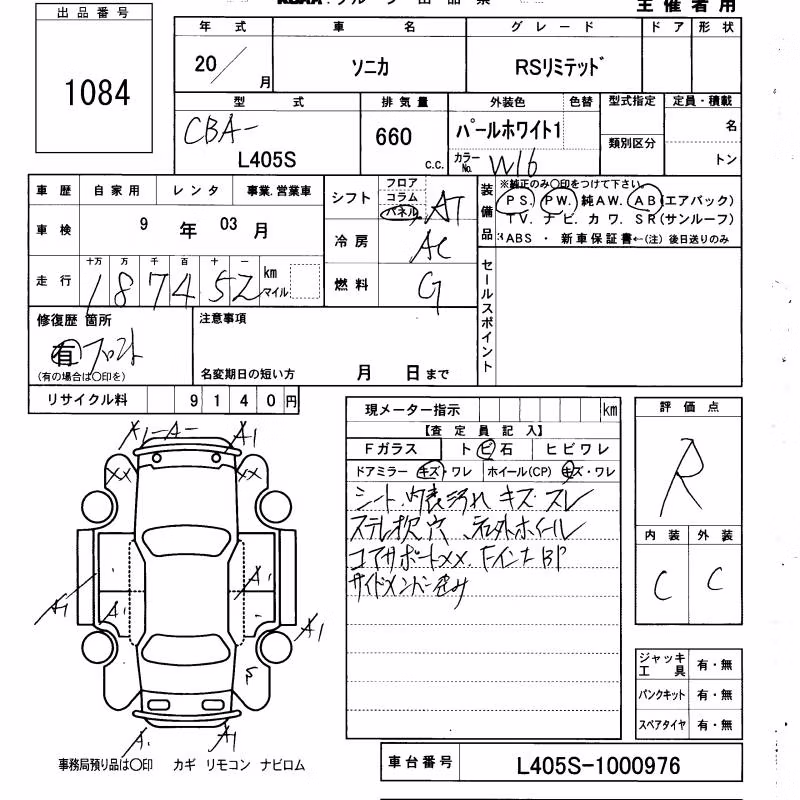 出品番号 主催者用
1084
年式 車名 グレード ドア 形状
20／ 月 ソニカ RSリミテッド
型式 排気量 外装色 色替 型式指定 定員・積載
CBA-
L405S 660 c.c. パールホワイト1 類別区分 名
カラーNo. W16 トン
車歴 自家用 レンタ 事業.営業車 シフト フロア コラム パネル AT
装備品 ※純正のみ○印をつけて下さい。
PS. PW. 純AW. AB(エアバック)
TV. ナビ. カワ. SR(サンルーフ)
ABS ・ 新車保証書←(注) 後日送りのみ
車検 9年 03月 冷房 AC
走行 十万 万 千 百 十 一
187452 km マイル 燃料 G
セールスポイント
修復歴 箇所 注意事項
有
(有の場合は○印を) 名変期日の短い方 月 日まで
リサイクル料 9140円
現メーター指示 km 評価点
【査定員記入】
Fガラス トビ石 ヒビワレ
ドアミラー キズ・ワレ ホイール(CP) キズ・ワレ
R
シート.内張汚れ キズ スレ
ステレオ欠 穴 社外ホイール
コアサポートXX. FインナBP
サイドメンバー歪み
内装 外装
C C
A1 -A- A1
XX XX
A1 A1
A1 A1
A1 A1
ジャッキ工具 有・無
パンクキット 有・無
スペアタイヤ 有・無
事務局預り品は○印 カギ リモコン ナビロム
車台番号 L405S-1000976